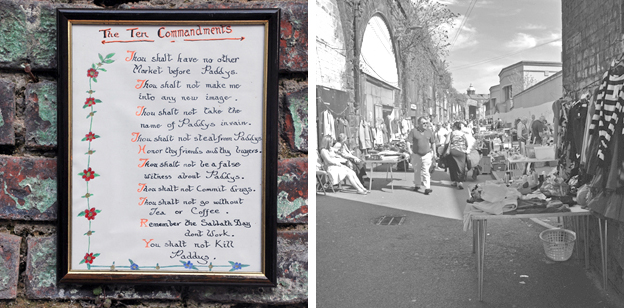 The Ten Commandments
Thou shalt have no other
Market before Paddys.
Thou shalt not make me
into any new image.
Thou shalt not take the
name of Paddys in vain.
Thou shalt not steal from Paddys
Honor thy friends and thy buyers.
Thou shalt not be a false
witness about Paddys.
Thou shalt not Commit drugs.
Thou shalt not go without
Tea or Coffee.
Remember the Sabbath Day
dont Work.
You shalt not Kill
Paddys.